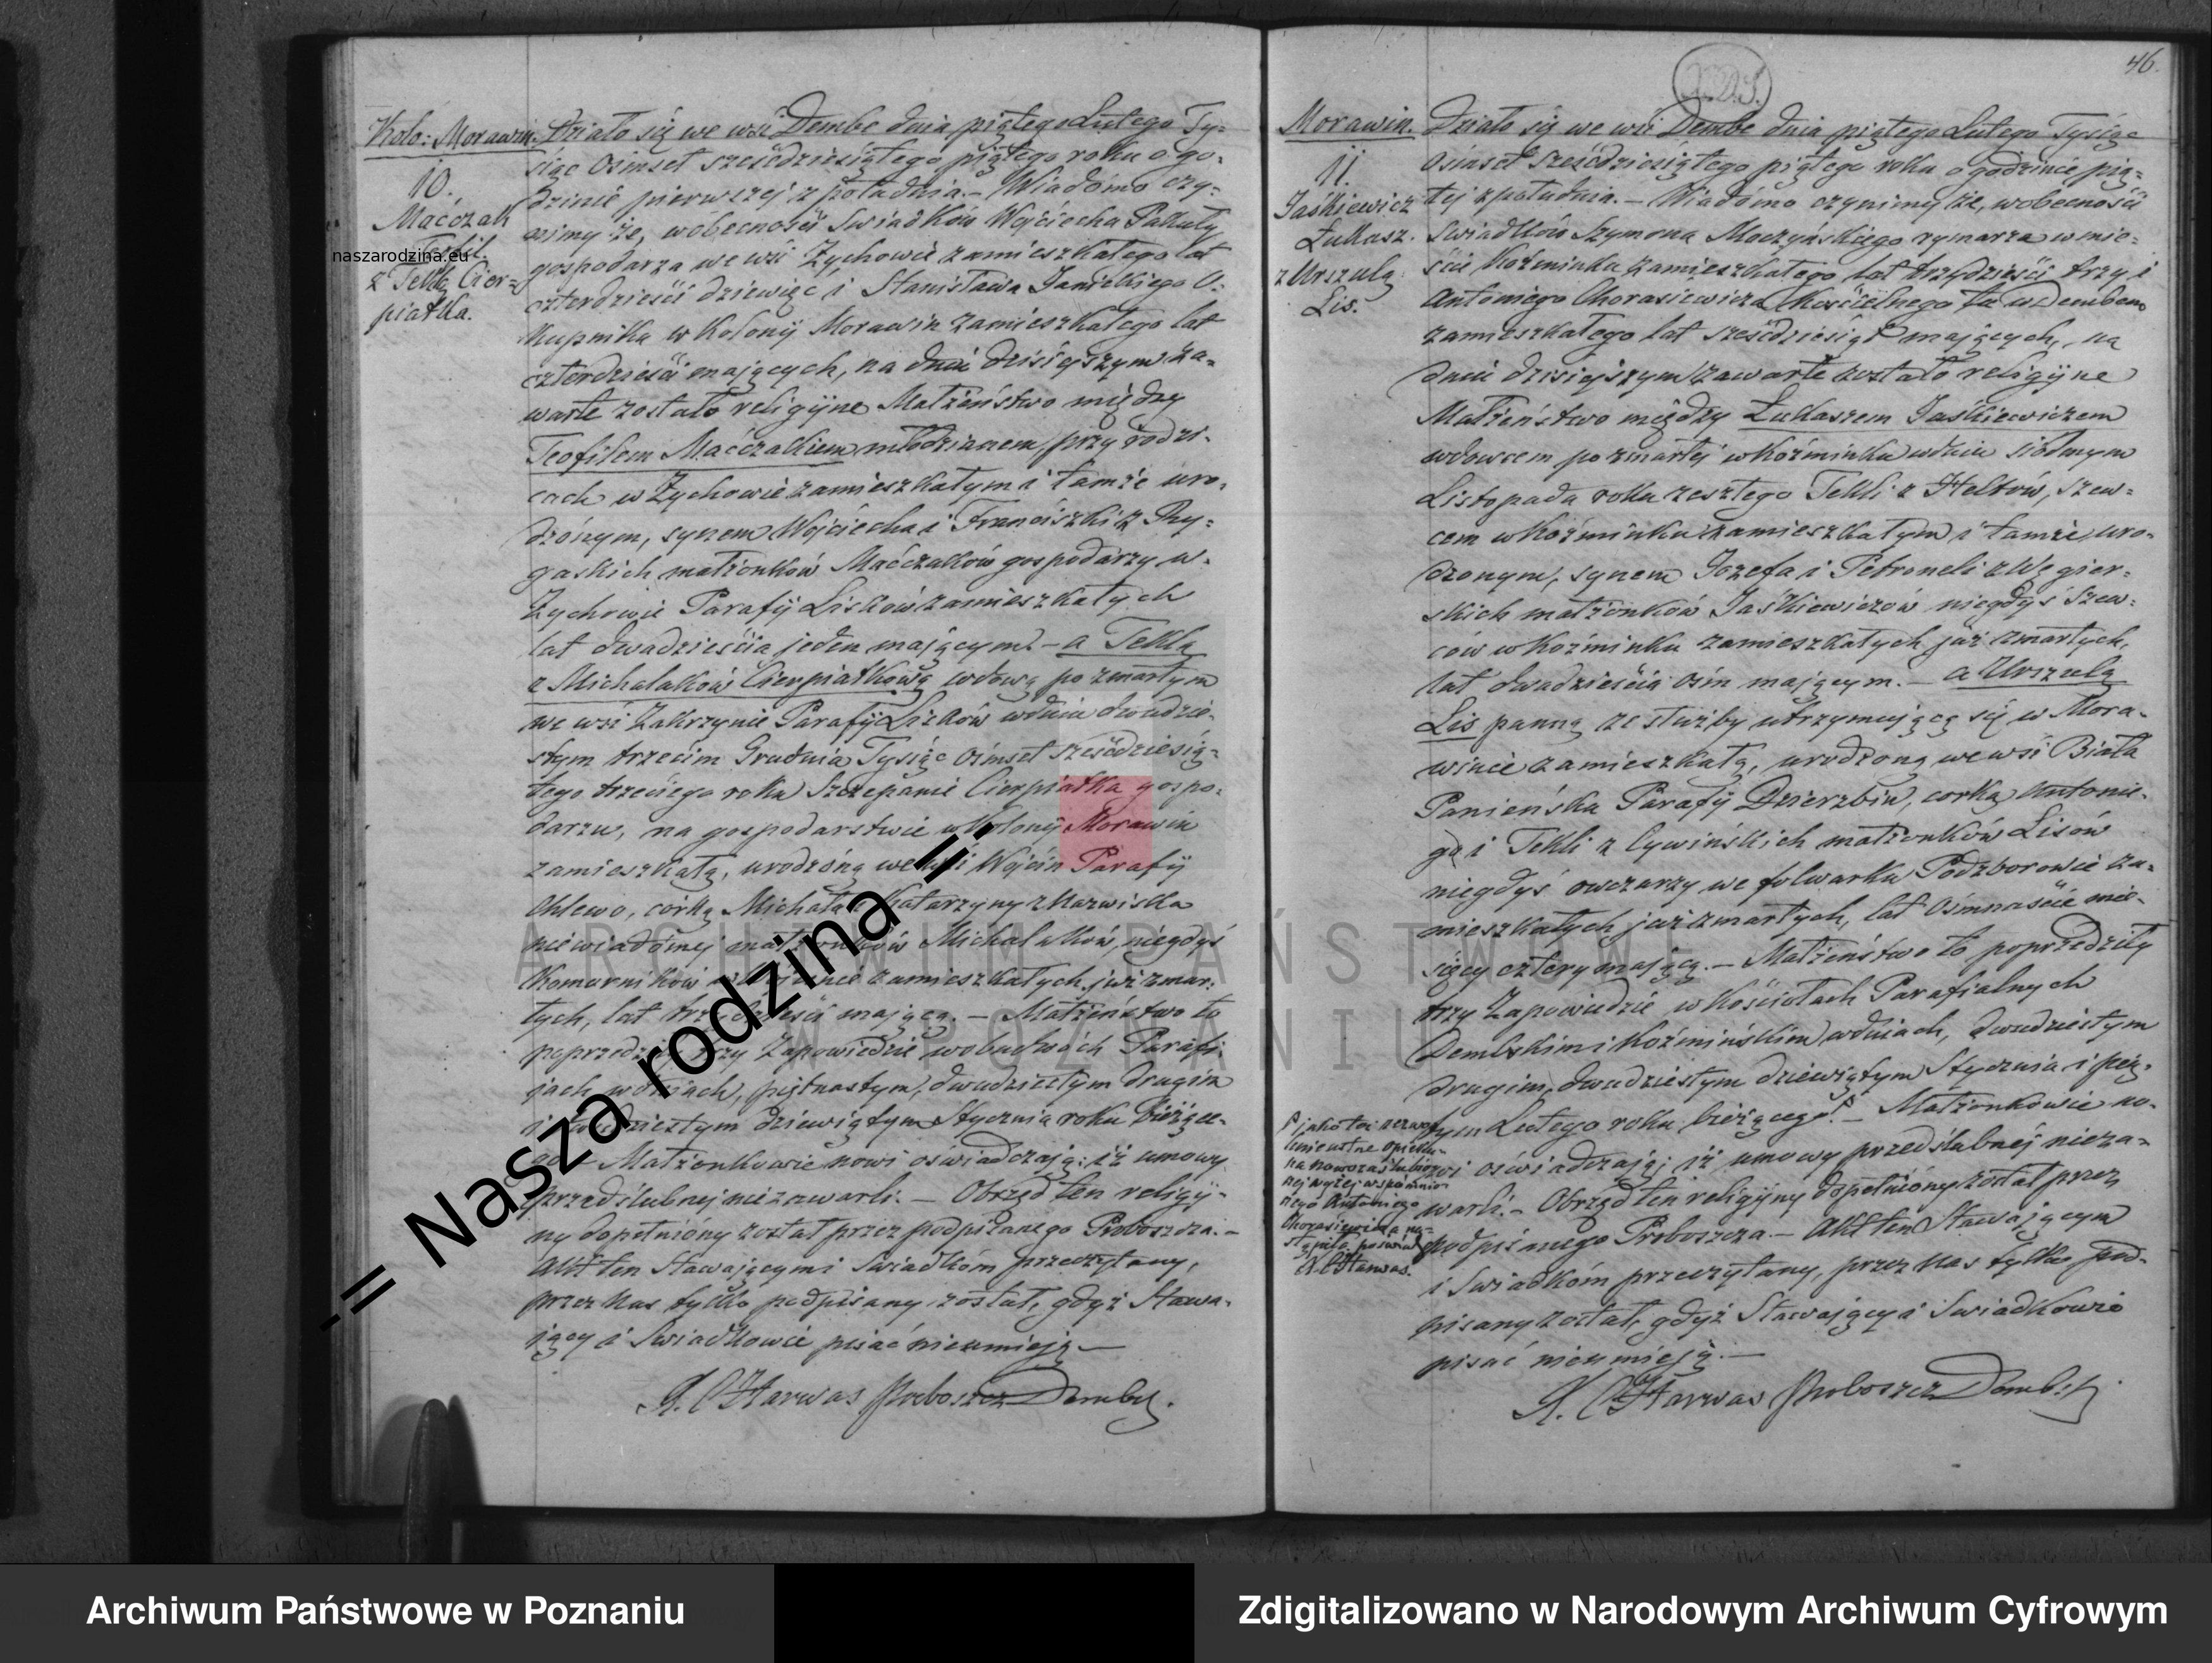 46.
Kolo: Morawin.
10.
Maćczak
Teofil.
z Teklą Cier=
piatka.
naszarodzina.eu
Działo się we wsi Dembe dnia piątego Lutego Ty=
siąc Osimset sześćdziesiątego piątego roku o go=
dzinie pierwszej z południa. – Wiadomo czy=
nimy że, wobecności Swiadków Wojciecha Pakuły
gospodarza we wsi Zychowie zamieszkałego lat
czterdzieści dziewięć i Stanisława Janickiego O=
kupnika w Kolonij Morawin zamieszkałego lat
czterdzieści mających, na dniu dzisiejszym za=
warte zostało religijne Małżeństwo między
Teofilem Maćczakiem młodzianem, przy rodzi=
cach w Zychowie zamieszkałym i tamże uro=
dzónym, synem Wojciecha i Franciszki z Ry=
gaskich małżonków Maćczaków gospodarzy w
Zychowie Parafij Lisków zamieszkałych
lat dwadzieścia jeden mającym. – a Teklą
z Michalaków Cierpiatkową wdową po zmarłym
we wsi Zakrzynie Parafij Lisków wdniu dwudzie=
stym trzecim Grudnia Tysiąc Osimset sześćdziesią=
tego trzeciego roku Szczepanie Cierpiatka gospo=
darzu, na gospodarstwie w Kolonij Morawin
zamieszkałą, urodzóną we wsi Wojcin Parafij
Chlewo, córką Michała i Katarzyny z Nazwiska
niewiadómej małżonków Michalaków, niegdyś
Komorników w zamieszkałych, już zmar=
łych, lat trzydzieści mającą. – Małżeństwo to
poprzedziły trzy Zapowiedzie wobudwóch Parafi=
jach wdniach, piętnastym, dwudziestym drugim
i dwudziestym dziewiątym Stycznia roku bieżące=
go – Małżonkowie nowi oświadczają; iż umowy
przedślubnej niezawarli. – Obrzęd ten religij=
ny dopełnióny został przez podpisanego Proboszcza. –
Akt ten Stawającymi Swiadkóm przeczytany,
przez Nas tylko podpisany został, gdyż Stawa=
jący i Swiadkowie pisać nieumieją –
X. C Harwas Proboszcz Dembsk.
Morawin.
11.
Jaśkiewicz
Łukasz.
z Urszulą
Lis.
Działo się we wsi Dembe dnia piątego Lutego Tysiąc
Osimset Sześćdziesiątego piątego roku o godzinie pią=
tej z południa. – Wiadómo czynimy że, wobecności
Swiadków Szymona Moczyńskiego rymarza w mie=
ście Koźminku zamieszkałego lat trzydzieści trzy i
Antoniego Chorasiewicza Kościelnego tu w Dembem
zamieszkałego lat sześćdziesiąt mających, na
dniu dzisiejszym zawarte zostało religijne
Małżeństwo między Łukaszem Jaśkiewiczem
wdowcem po zmarłej w Koźminku wdniu siódmym
Listopada roku zeszłego Tekli z Heltów, szew=
cem w Koźminku zamieszkałym i tamże, uro=
dzonym, synem Józefa i Petroneli z Węgier=
skich małżonków Jaśkiewiczów niegdyś szew=
ców w Koźminku zamieszkałych już zmarłych,
lat dwadzieścia ośm mającym. – a Urszulą
Lis panną ze służby utrzymującą się w Mora=
wince zamieszkałą, urodzoną we wsi Biała
Panieńska Parafij Dzierzbin, corką Antonie=
go i Tekli z Cywińskich małżonków Lisów
niegdyś owczarzy we folwarku Podzborowie za=
mieszkałych już zmarłych, lat Osimnaście mie=
sięcy cztery mającą. – Małżeństwo to poprzedziły
trzy Zapowiedzie w Kościołach Parafjalnych
Dembskim i Koźmińskim wdniach, dwudziestym
drugim, dwudziestym dziewiątym Stycznia i pią=
tym Lutego roku bieżącego. – Małżonkowie no=
wi oświadczają; iż umowy przedślubnej nieza=
warli. – Obrzęd ten religijny dopełnióny został przez
podpisanego Proboszcza. – Akt ten Stawającym
i Swiadkóm przeczytany, przez Nas tylko pod=
pisany został, gdyż Stawający i Swiadkowie
pisać nieumieją. –
X. C Harwas Proboszcz Dembski
jako też zezwo=
lenie ustne opieku=
na nowozaślubio=
nej wyżej wspómnio=
nego Antoniego
Chorasiewicza na=
stąpiło poświad
X. C Harwas.
ARCHIWUM PAŃSTWOWE
W POZNANIU
-= Nasza rodzina =-
Archiwum Państwowe w Poznaniu
Zdigitalizowano w Narodowym Archiwum Cyfrowym